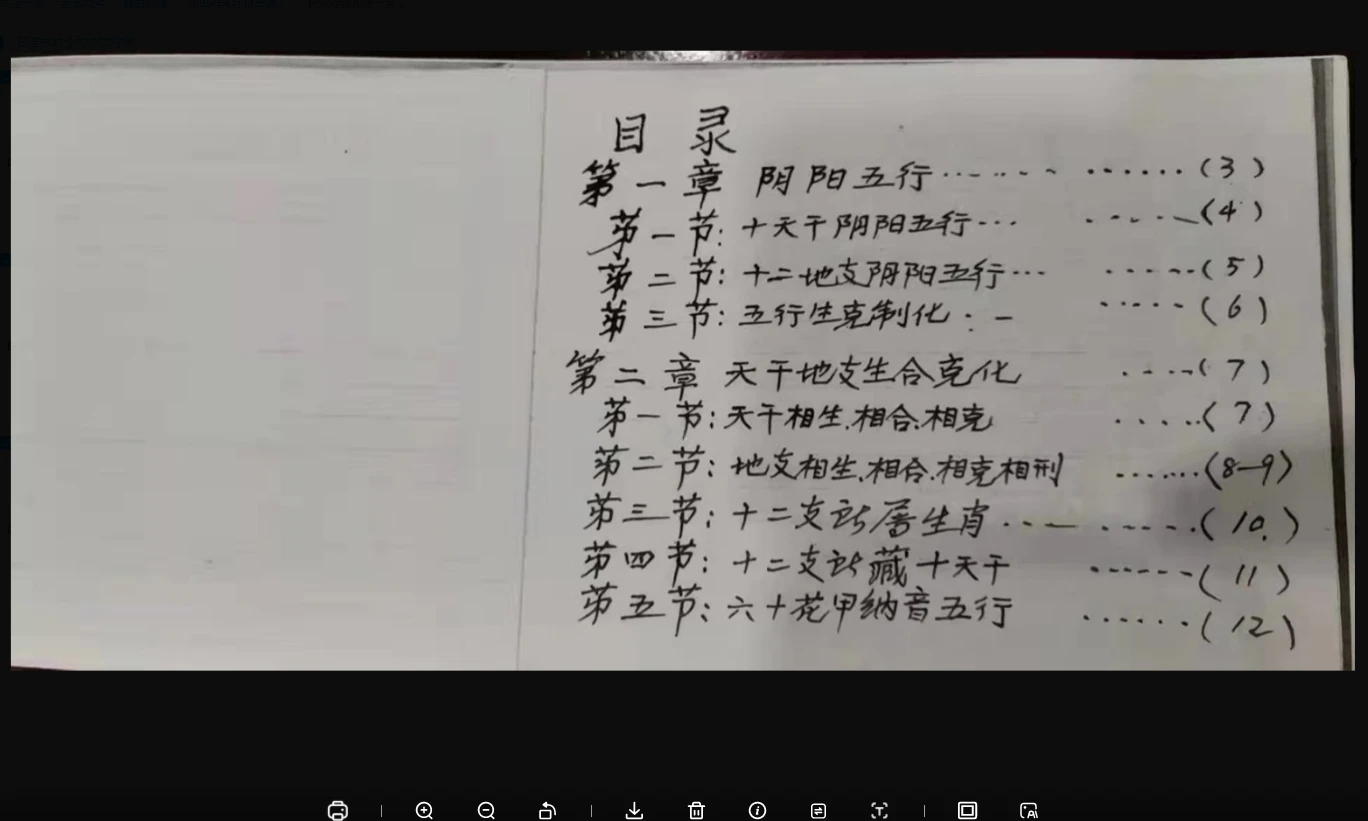 目 录
第一章 阴阳五行…………(3)
第一节:十天干阴阳五行………(4)
第二节:十二地支阴阳五行………(5)
第三节:五行生克制化……(6)
第二章 天干地支生合克化……(7)
第一节:天干相生.相合.相克……(7)
第二节:地支相生.相合.相克相刑……(8—9)
第三节:十二支所属生肖………(10.)
第四节:十二支所藏十天干……(11)
第五节:六十花甲纳音五行……(12)